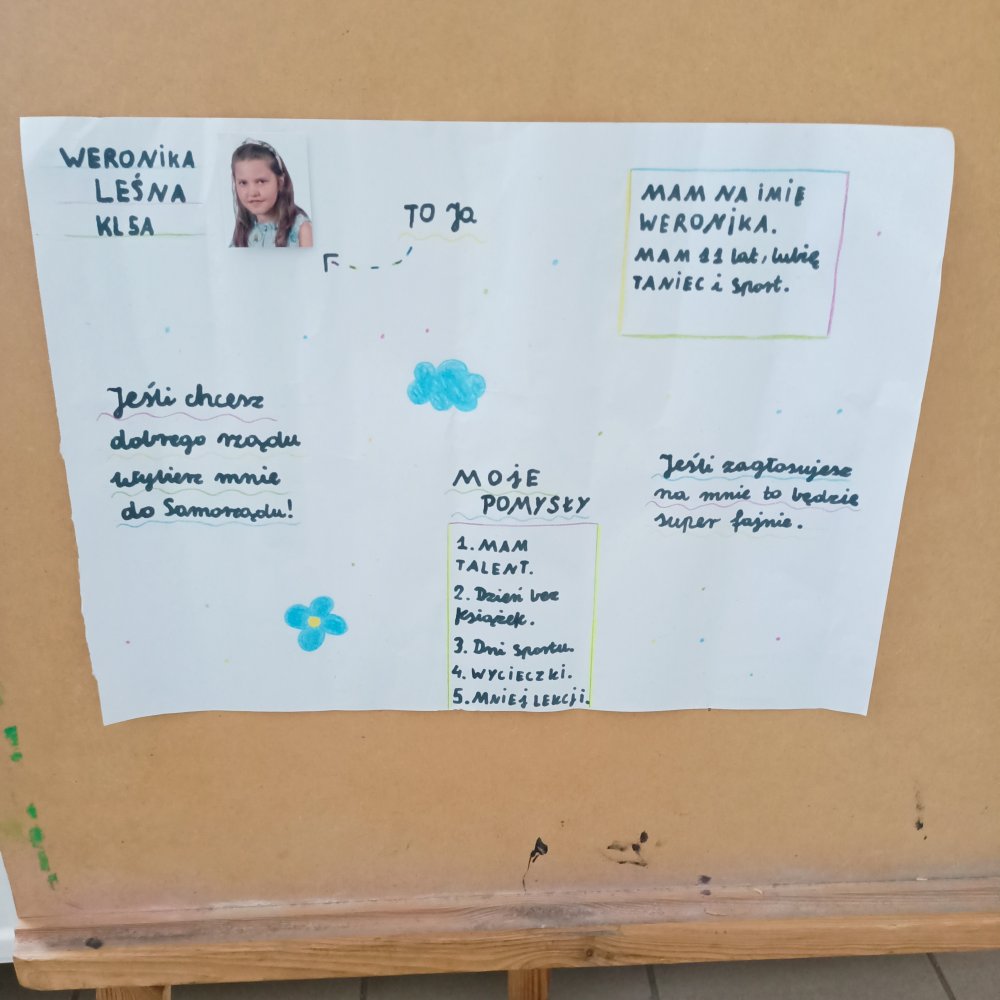 WERONIKA
LEŚNA
KL5A
TO JA
MAM NA IMIĘ
WERONIKA.
MAM 11 lat, lubię
TANIEC i sport.
Jeśli chcesz
dobrego rządu
wybierz mnie
do Samorządu!
MOJE
POMYSŁY
1. MAM
TALENT.
2. Dzień bez
książek.
3. Dni sportu.
4. WYCIECZKI.
5. MNIEJ LEKCJI.
Jeśli zagłosujesz
na mnie to będzie
super fajnie.